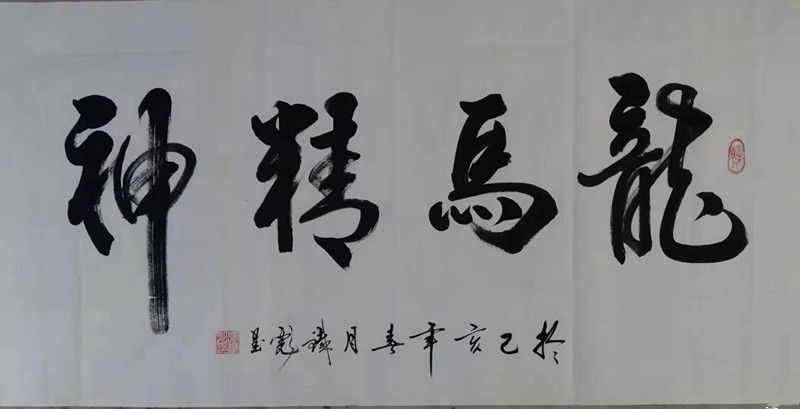 龍馬精神
於己亥年春月